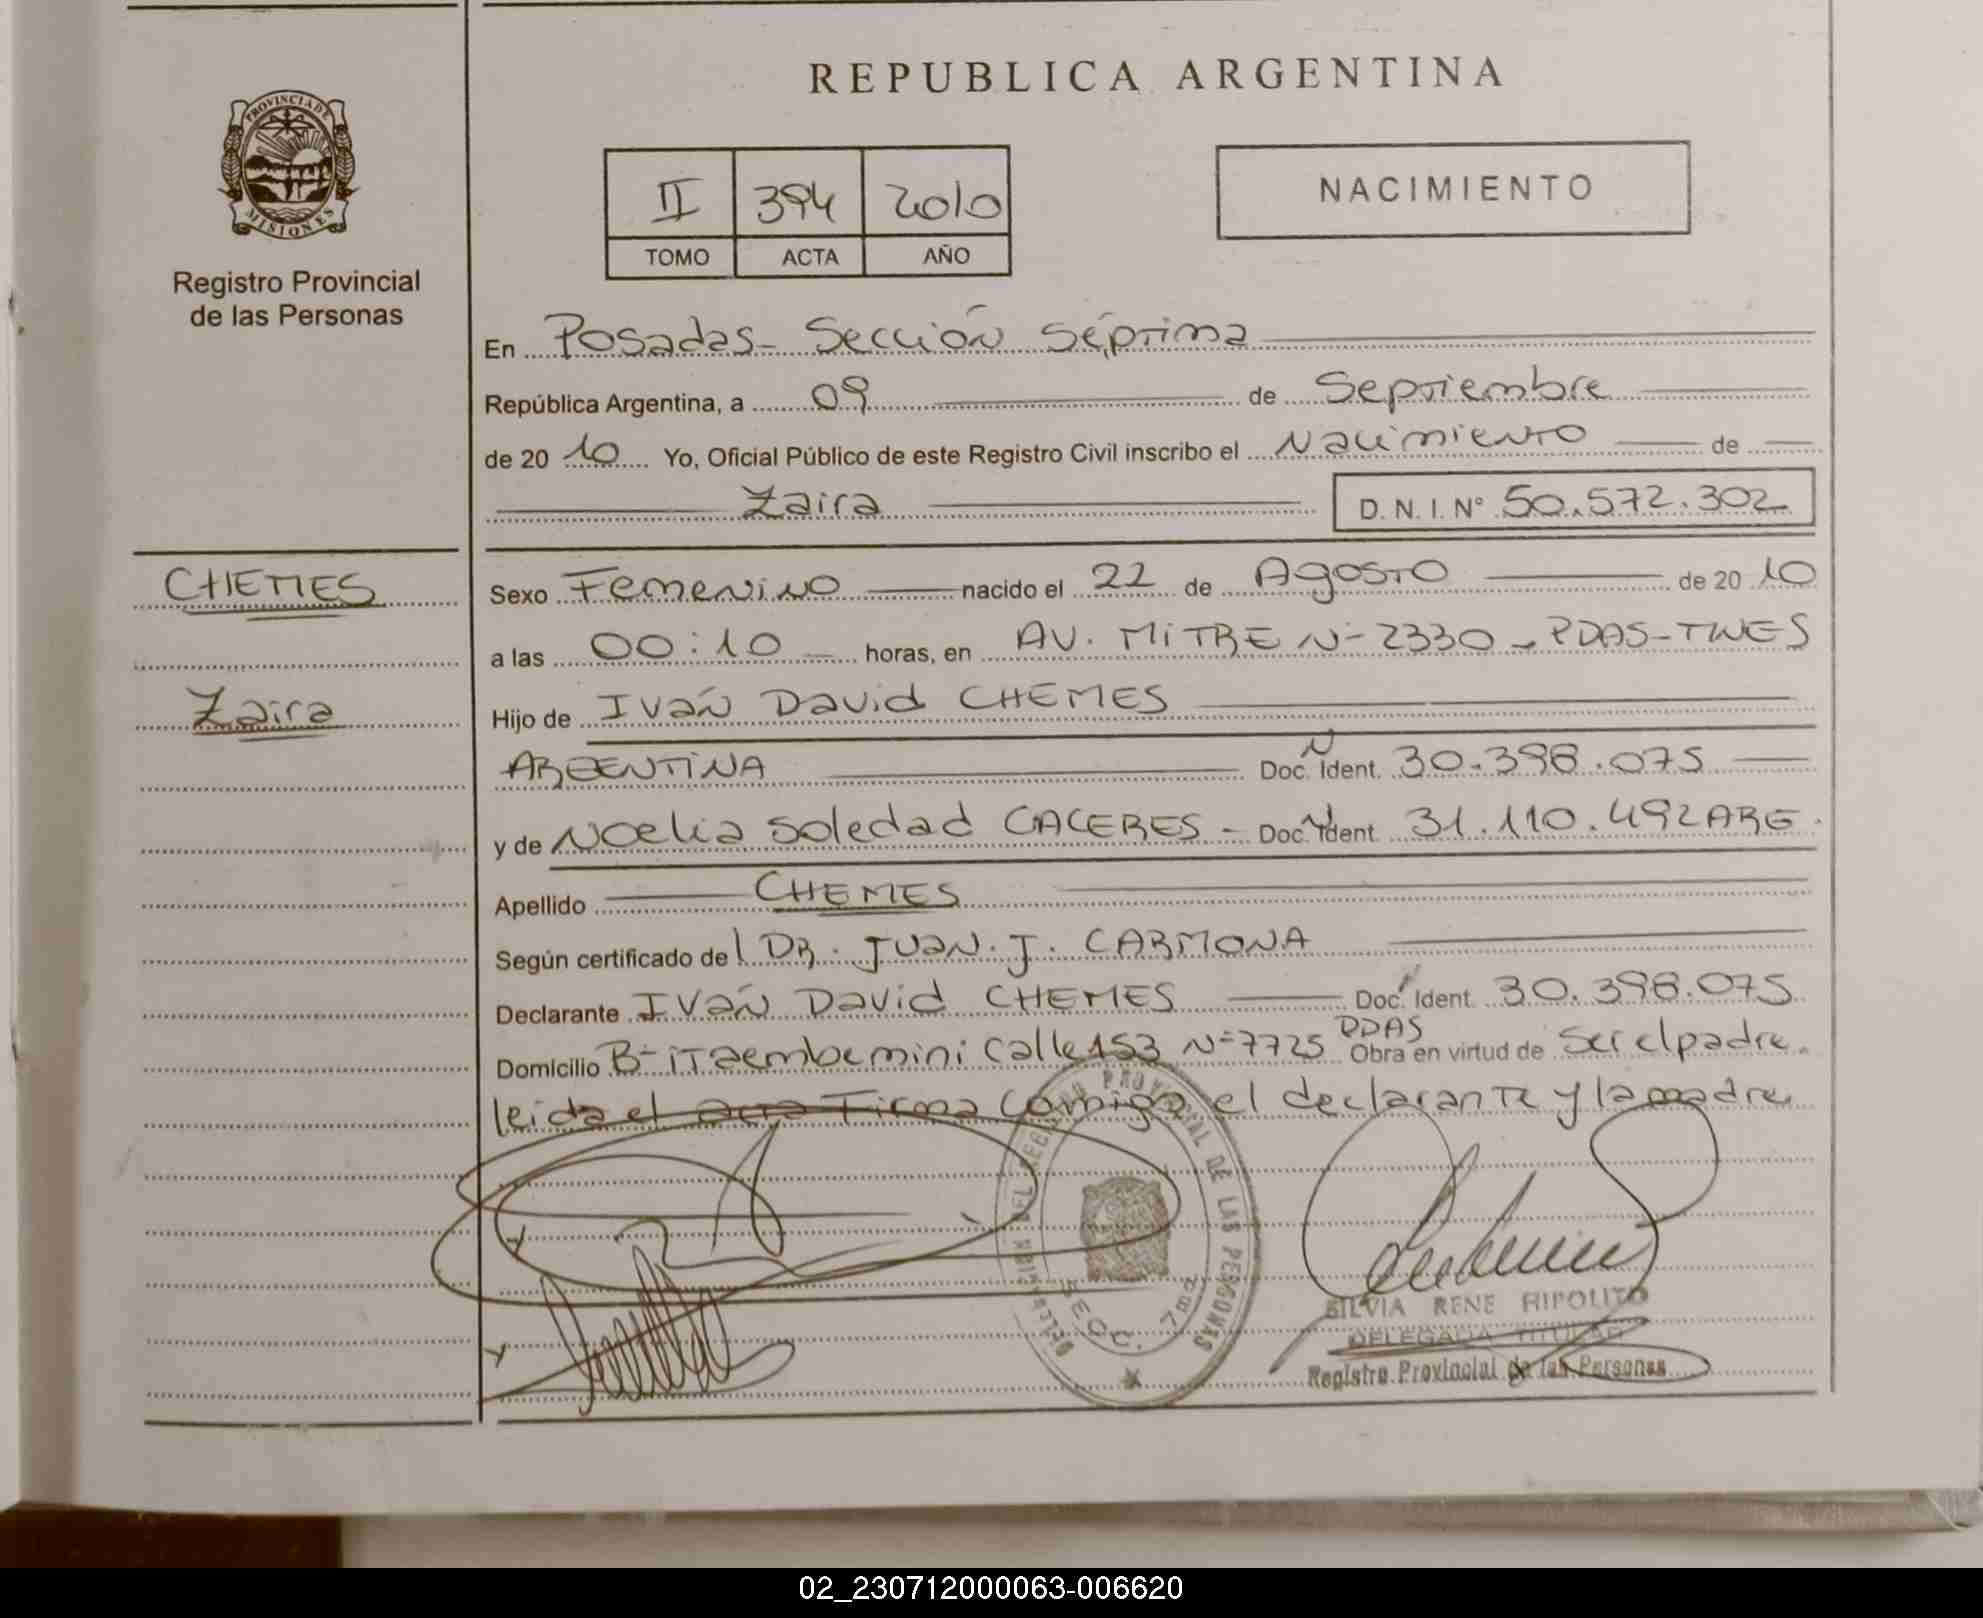 REPUBLICA ARGENTINA
PROVINCIA DE
MISIONES
Registro Provincial
de las Personas
II 394 2010
TOMO ACTA AÑO
NACIMIENTO
En Posadas - Sección Séptima
República Argentina, a 09 de Septiembre
de 20 10 Yo, Oficial Público de este Registro Civil inscribo el Nacimiento de
Zaira D.N.I. N° 50.572.302
CHEMES
Sexo Femenino nacido el 22 de Agosto de 20 10
a las 00:10 horas, en AV. MITRE N- 2330 - PDAS-MNES
Zaira
Hijo de Iván David CHEMES
ARGENTINA Doc. N Ident. 30.398.075
y de Noelia Soledad CACERES - Doc. N Ident. 31.110.492 ARG.
Apellido CHEMES
Según certificado de DR. JUAN. J. CARMONA
Declarante Iván David CHEMES Doc. Ident. 30.398.075
Domicilio B- itaembe mini Calle 153 N- 7725 PDAS Obra en virtud de ser el padre.
leida el acta Firma conmigo el declarante y la madre
REGISTRO PROVINCIAL DE LAS PERSONAS
SECC. 7ma
SILVIA RENE HIPOLITO
DELEGADA TITULAR
Registro Provincial de las Personas
02_230712000063-006620